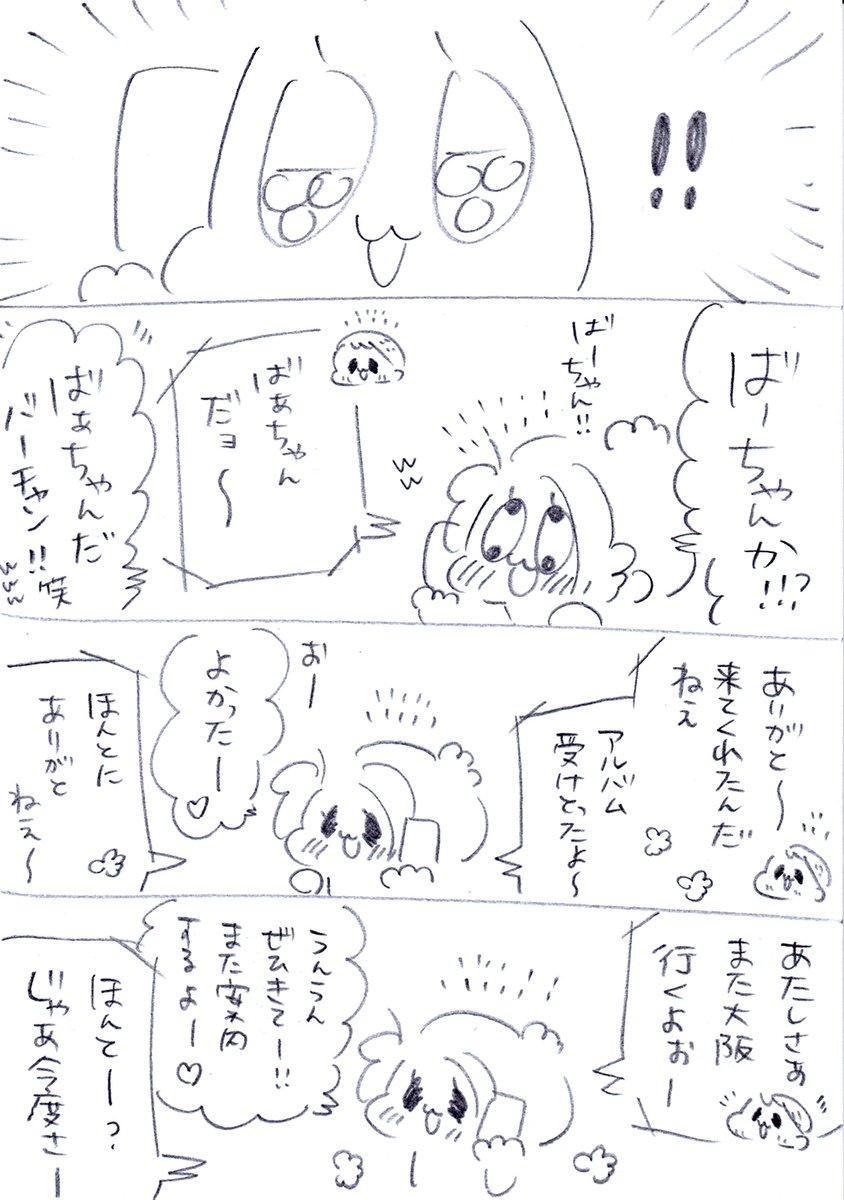 !!
ばーちゃんか!!!?
ばーちゃん!!
ww
ばあちゃん
だョ〜
ばぁちゃんだ
バーチャン!!笑
www
ありがと〜
来てくれたんだ
ねぇ
アルバム
受けとったよ〜
おー
よかったー♡
ほんとに
ありがと
ねぇ〜
あたしさぁ
また大阪
行くよぉー
うんうん
ぜひきてー!!
また案内
するよー♡
ほんてー?
じゃあ今度さー